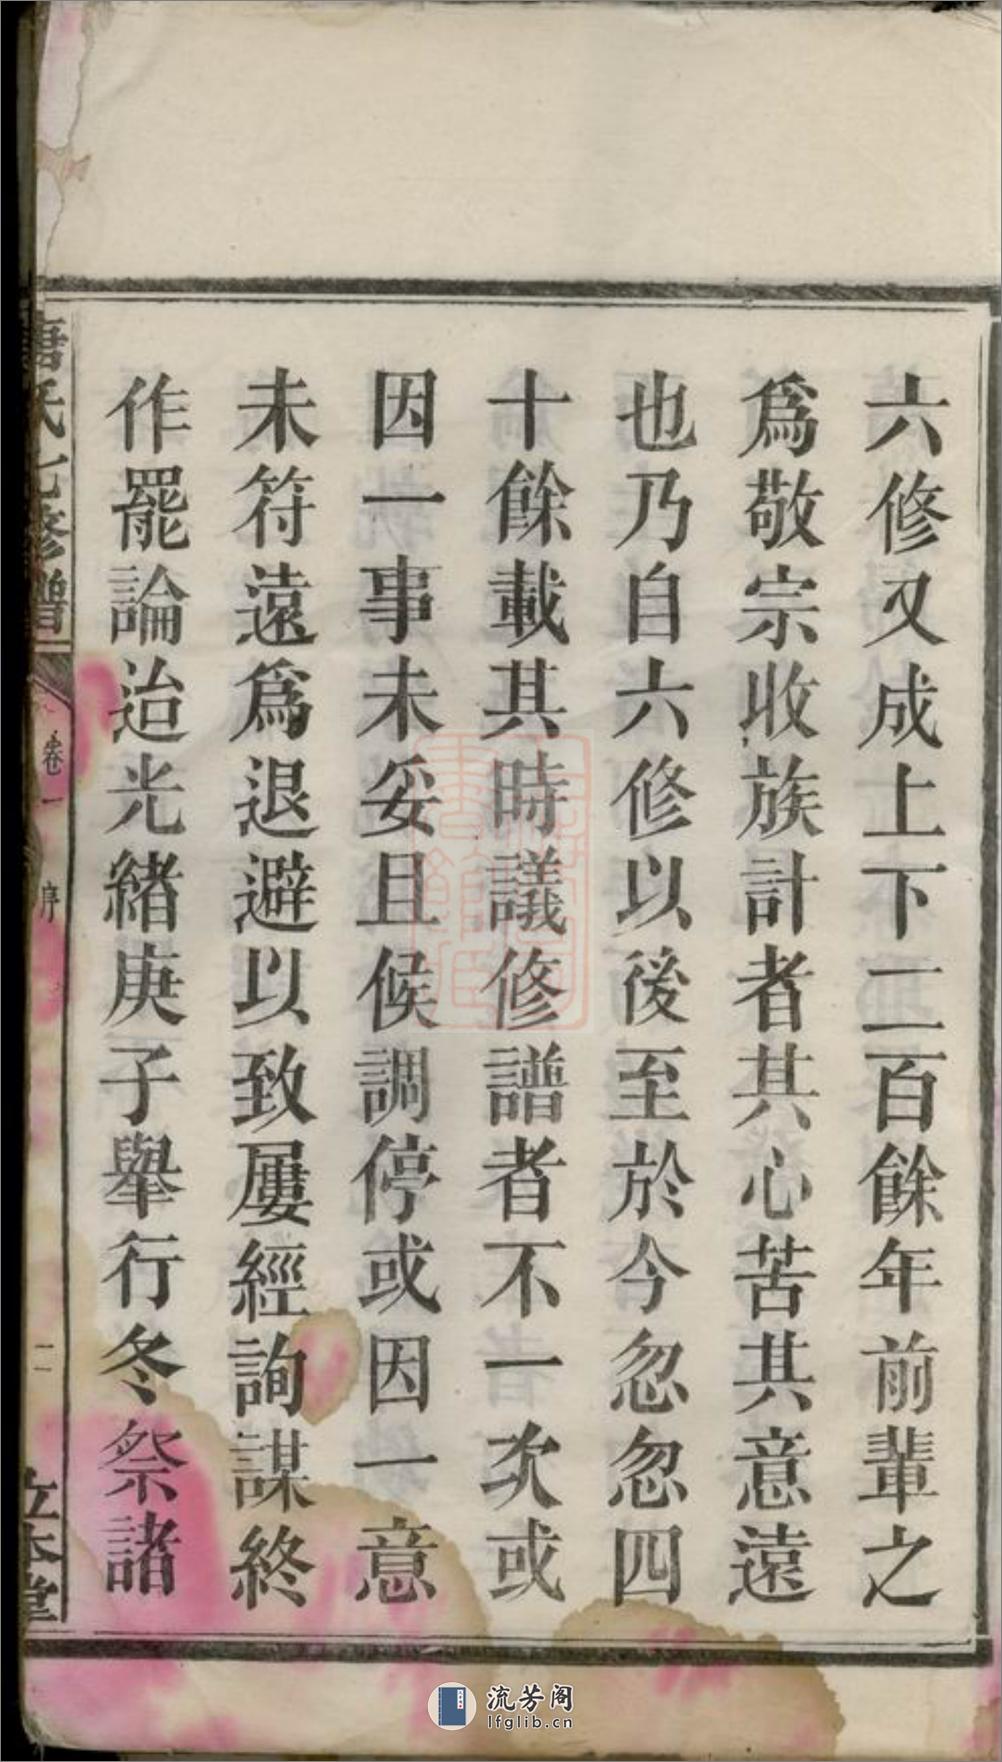 六修又成上下二百餘年前輩之
爲敬宗收族計者其心苦其意遠
也乃自六修以後至於今忽忽四
十餘載其時議修譜者不一次或
因一事未妥且候調停或因一意
未符遠爲退避以致屢經詢謀終
作罷論迨光緒庚子舉行冬祭諸
氏七修譜
卷一
序
二
立本堂
流芳阁
lfglib.cn